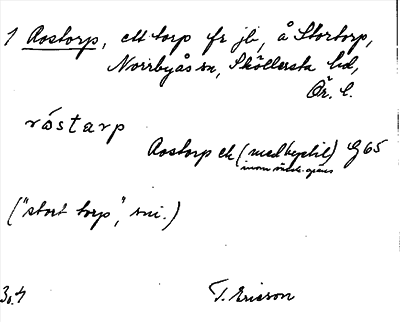 1 Rostorp, ett torp fr jb, å Stortorp,
Norrbyås sn, Sköllersta hd,
Ör. l.
róstarp
Rostorp ek (med byxtil) G 65
inom
("stort torp", sni.)
30.4
T. Ericson